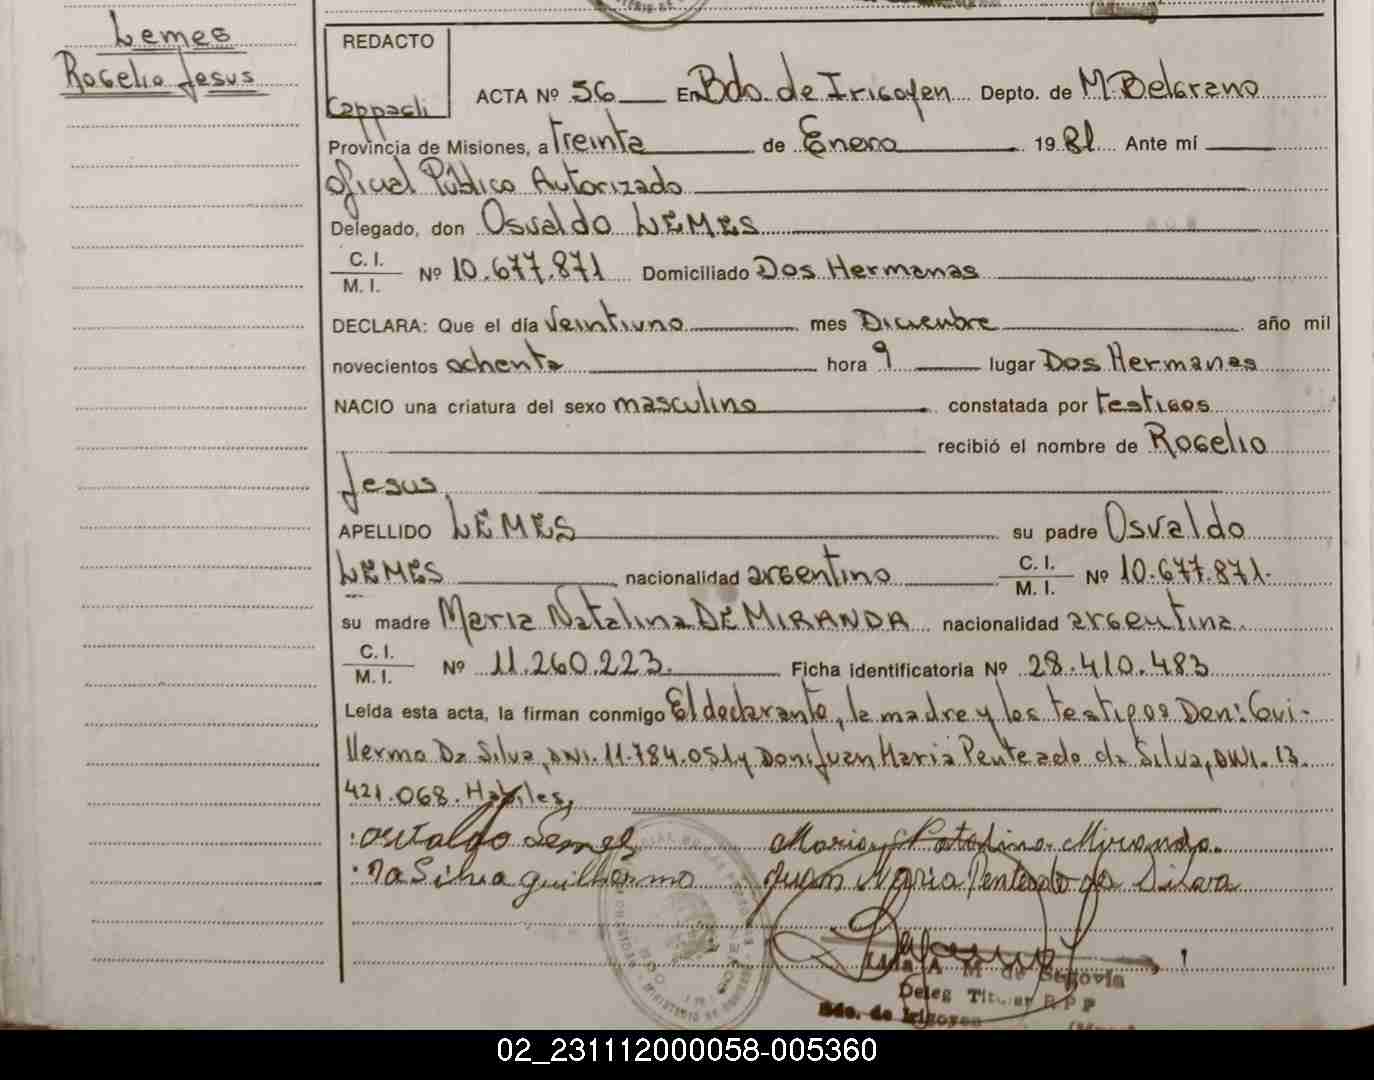 Lemes
Rogelio Jesus
REDACTO
Cappagli
ACTA Nº 56 En Bdo. de Irigoyen Depto. de M. Belgrano
Provincia de Misiones, a treinta de Enero 1981 Ante mí
Oficial Público Autorizado
Delegado, don Osvaldo LEMES
C. I.
M. I. Nº 10.677.871 Domiciliado Dos Hermanas
DECLARA: Que el día veintiuno mes Diciembre año mil
novecientos ochenta hora 9 lugar Dos Hermanas
NACIO una criatura del sexo masculino constatada por testigos
recibió el nombre de Rogelio
Jesus
APELLIDO LEMES su padre Osvaldo
LEMES nacionalidad argentino C. I.
M. I. Nº 10.677.871.
su madre Maria Natalina DE MIRANDA nacionalidad argentina.
C. I.
M. I. Nº 11.260.223. Ficha identificatoria Nº 28.410.483
Leída esta acta, la firman conmigo El declarante, la madre y los testigos Don: Gui-
llermo Da Silva, DNI. 11.784.051 y Don: Juan Maria Penteado da Silva, DNI. 13.
421.068. Habiles,
Osvaldo Lemes Maria Natalina Miranda.
Da Silva guilhermo Juan Maria Penteado da Silva
A M de Segovia
Deleg Titular R P P
Bdo. de Irigoyen
02_231112000058-005360